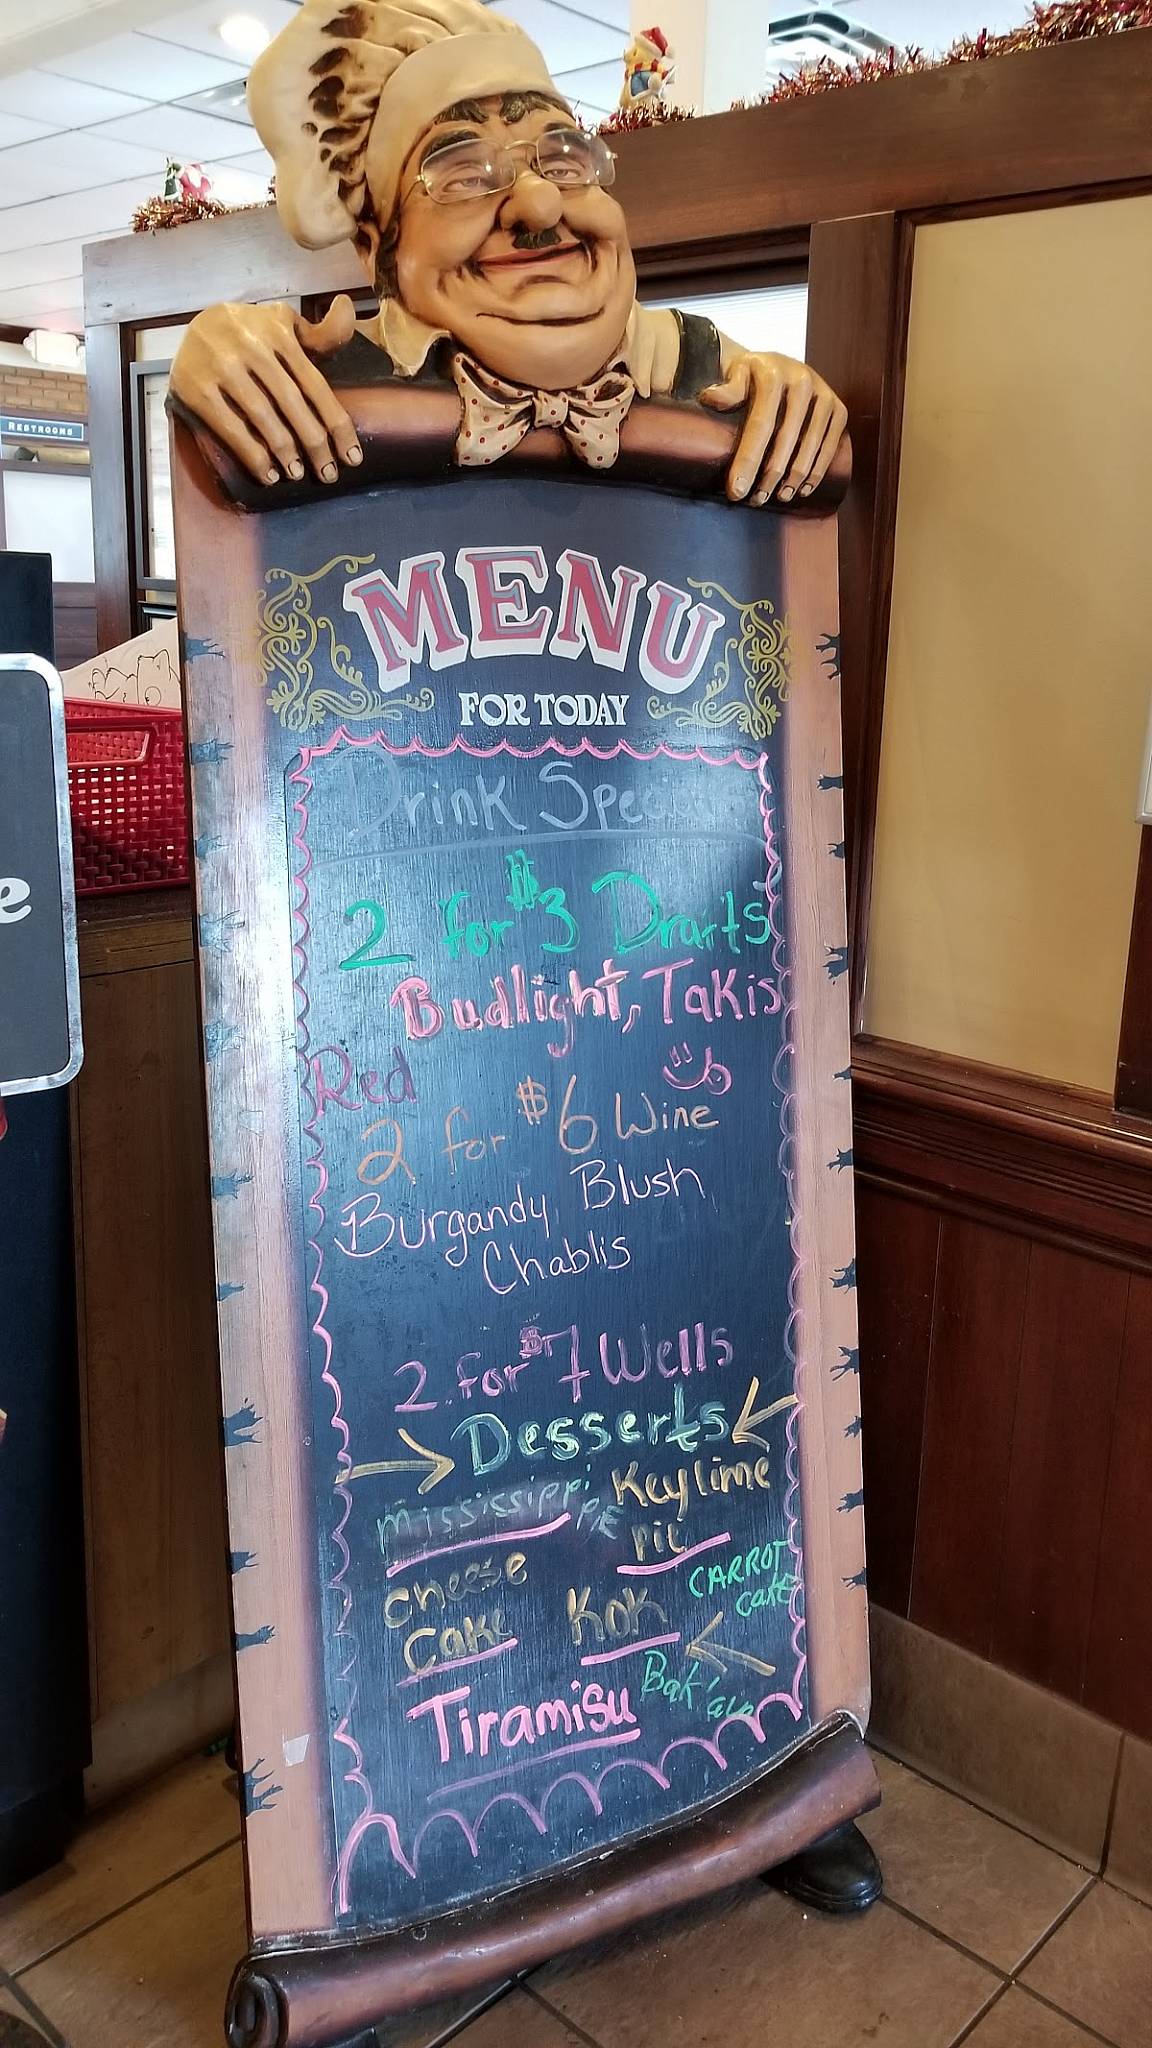 RESTROOMS
MENU
FOR TODAY
Drink Specials
2 for $3 Drafts
Budlight, Takis
Red
2 for $6 Wine
Burgandy, Blush
Chablis
2 for $7 Wells
Desserts
Mississippi PIE
Keylime
PIE
Cheese
Cake
KOK
CARROT
cake
Tiramisu
e